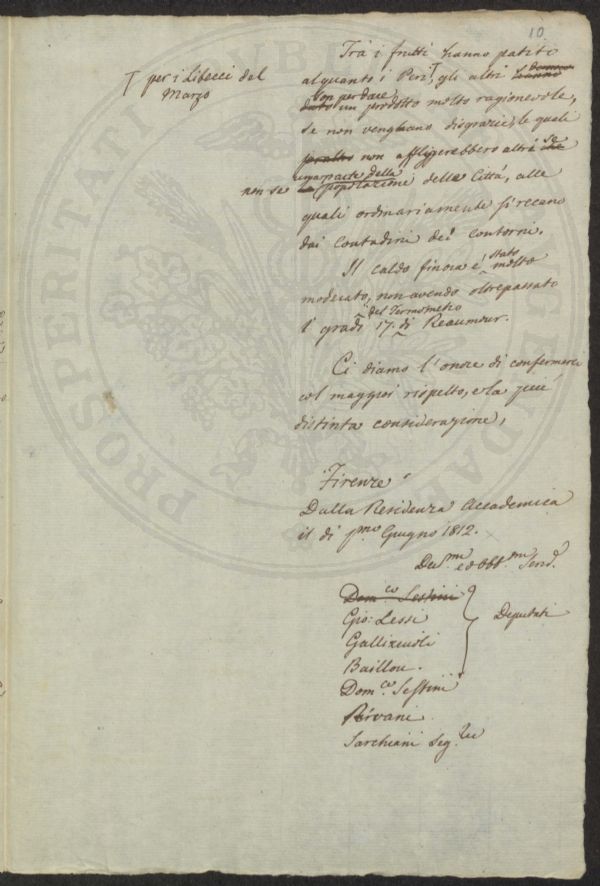 10
Tra i frutti hanno patito
⊤ per i Libecci del
Marzo
alquanto i Peri⊤, gli altri hanno
son per dare
dato un prodotto molto ragionevole,
se non venghano disgrazie, le quali
peraltro non affliggerebbero altri se
una parte della
non se la popolazione della Città, alle
quali ordinariamente si recano
dai Contadini dei contorni.
Il caldo finora è stato molto
moderato, non avendo oltrepassato
del Termometro
i gradi 17. di Reaumur.
Ci diamo l'onore di confermarci
col maggior rispetto, e la più
distinta considerazione,
Firenze
Dalla Residenza Accademica
il dì pmo Giugno 1812.
Devmi ed Obbmi Servi
Domco Sestini
Gio: Lessi
Gallizioli
Baillou.
Deputati
Domco Sestini
Pirvani
Sarchiani Segrio
PROSPERITATI PUBLICAE AUGENDAE